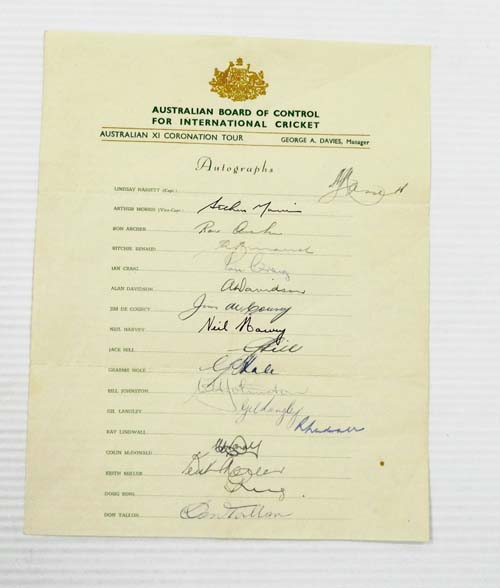 AUSTRALIAN BOARD OF CONTROL
FOR INTERNATIONAL CRICKET
AUSTRALIAN XI CORONATION TOUR GEORGE A. DAVIES, Manager
Autographs
LINDSAY HASSETT (Capt.)
ARTHUR MORRIS (Vice-Capt.) Arthur Morris
RON ARCHER Ron Archer
RITCHIE BENAUD R Benaud
IAN CRAIG Ian Craig
ALAN DAVIDSON A Davidson
JIM DE COURCY Jim de Courcy
NEIL HARVEY Neil Harvey
JACK HILL J Hill
GRAEME HOLE G Hole
BILL JOHNSTON W Johnston
GIL LANGLEY Gil Langley
RAY LINDWALL R Lindwall
COLIN McDONALD
KEITH MILLER Keith Miller
DOUG RING D Ring
DON TALLON Don Tallon